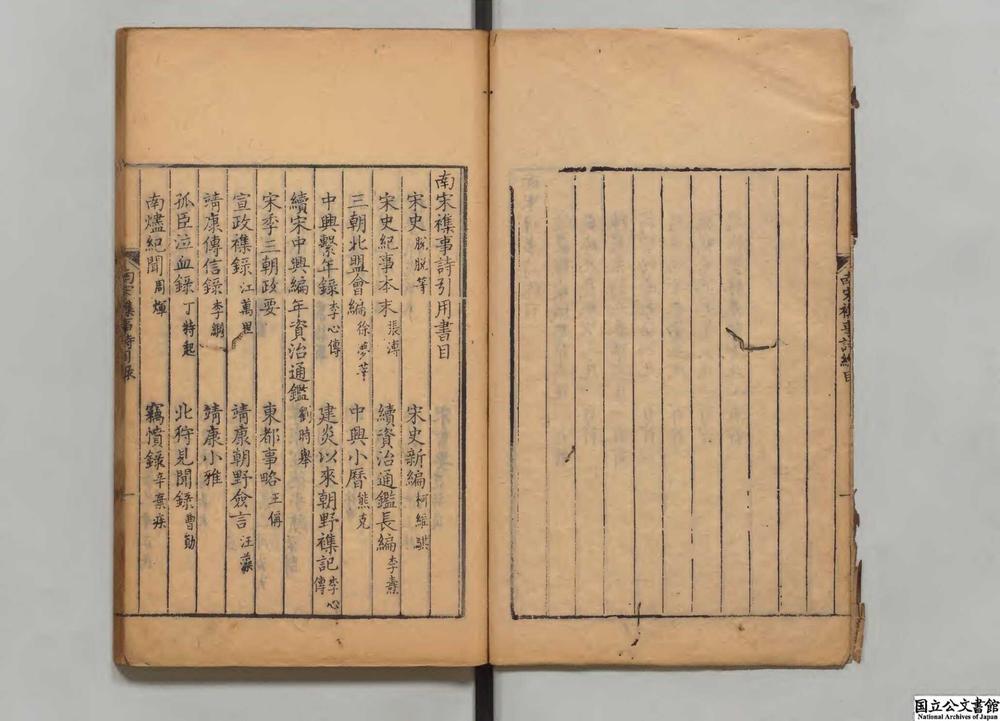 南宋襍事詩總目
南宋襍事詩引用書目
宋史 脫脫等 宋史新編 柯維騏
宋史紀事本末 張溥 續資治通鑑長編 李燾
三朝北盟會編 徐夢莘 中興小曆 熊克
中興繫年錄 李心傳 建炎以來朝野襍記 李心傳
續宋中興編年資治通鑑 劉時舉
宋季三朝政要 東都事略 王偁
宣政襍錄 江萬里 靖康朝野僉言 汪藻
靖康傳信錄 李綱 靖康小雅
孤臣泣血錄 丁特起 北狩見聞錄 曹勛
南燼紀聞 周煇 竊憤錄 辛棄疾
南宋襍事詩
一
国立公文書館
National Archives of Japan